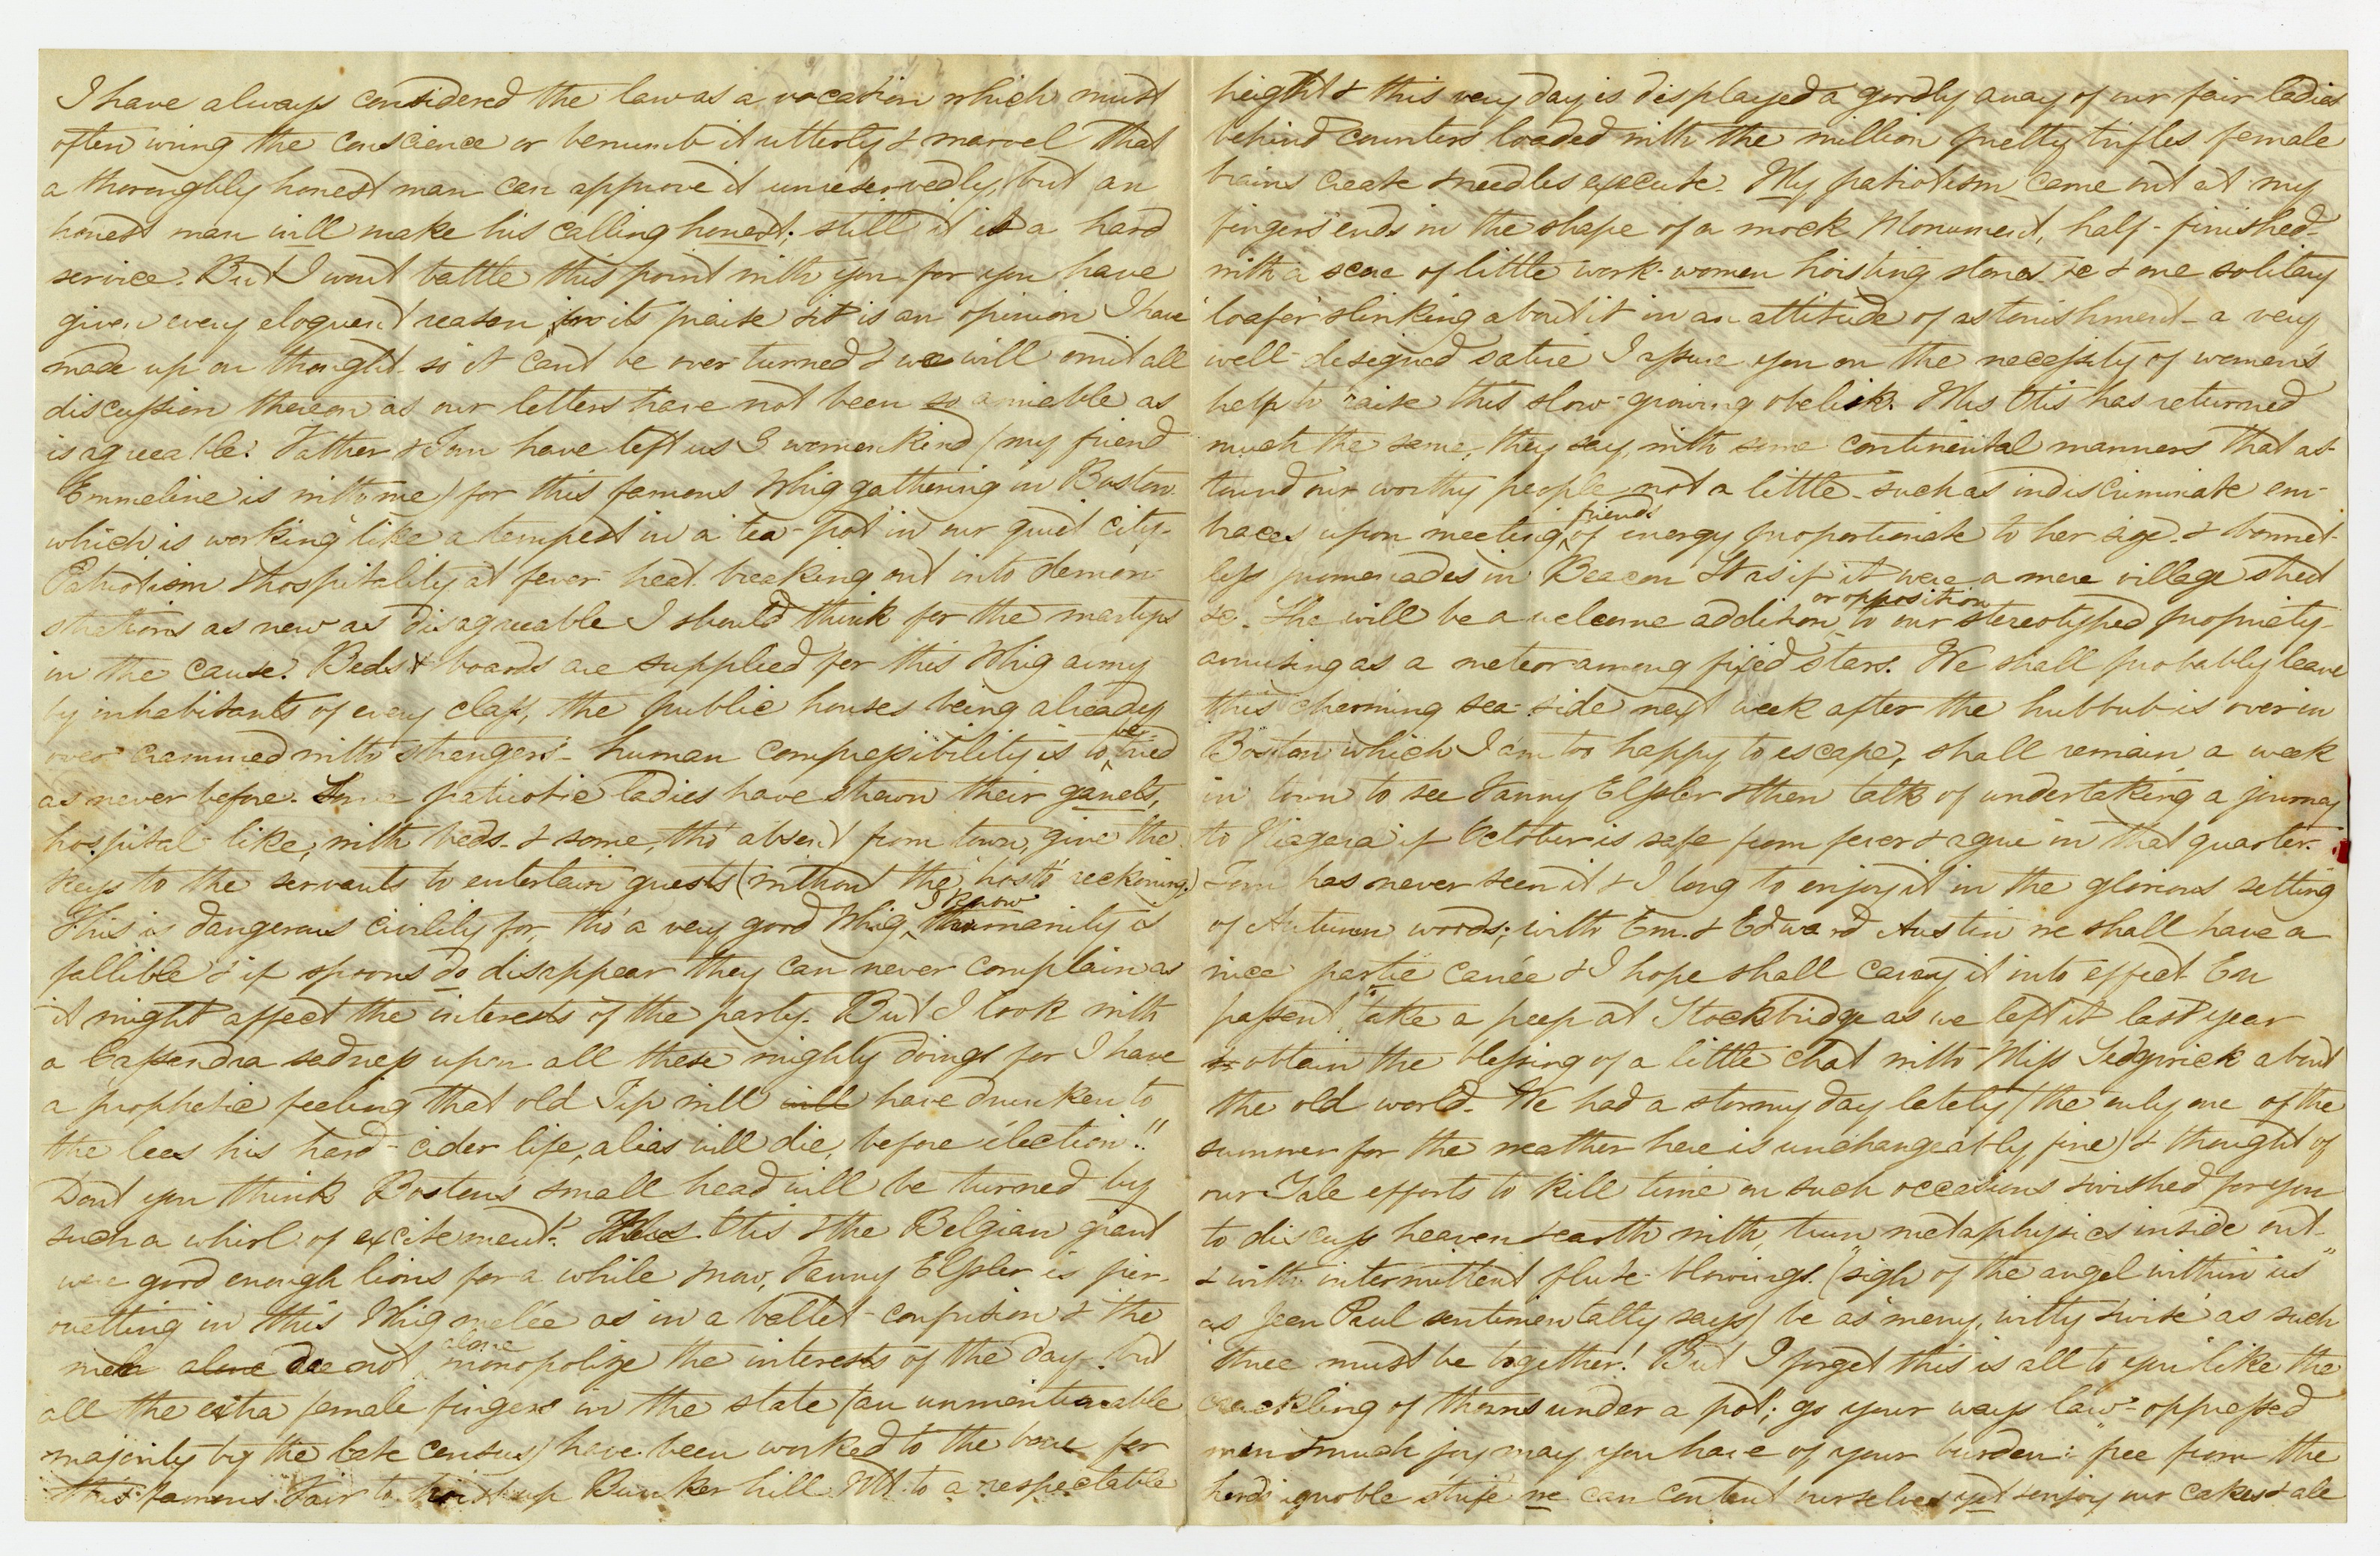 I have always considered the law as a vocation which must
often wring the conscience or benumb it utterly & marvel that
a thoroughly honest man can approve it unreservedly, but an
honest man will make his calling honest; still it is a hard
service. But I wont battle this point with you for you have
given every eloquent reason in its praise & it is an opinion I have
made up on thought so it cant be over turned & we will omit all
discussion thereon as our letters have not been so amiable as
is agreeable. Father & Tom have left us 3 womenkind (my friend
Emmeline is with me) for this famous Whig gathering in Boston
which is working like a tempest in a tea-pot in our quiet city.
Patriotism & hospitality at fever-heat breaking out into demon-
strations as new as disagreeable I should think for the martyrs
in the cause. Beds & boards are supplied for this Whig army
by inhabitants of every class, the public houses being already
over crammed with strangers - human compressibility is to be tried
as never before. Some patriotic ladies have strewn their garrets,
hospital-like, with beds - & some, tho' absent from town, give the
keys to the servants to entertain guests (without the hosts' reckoning.)
This is dangerous civility for, tho' a very good Whig, I know humanity is
fallible & if spoons do disappear they can never complain as
it might affect the interests of the party. But I look with
a Cassandra sadness upon all these mighty doings for I have
a prophetic feeling that old Tip will will have drunken to
the lees his hard-cider life, alias will die, before election!!
Dont you think Boston's small head will be turned by
such a whirl of excitement? Mrs Otis & the Belgian giant
were good enough lions for a while & now, Fanny Elssler is pir-
ouetting in this Whig melée as in a ballet-confusion & the
men alone do not alone monopolize the interests of the day - but
all the extra female fingers in the state (an unmentionable
majority by the late census) have been worked to the bone for
this famous Fair to hoist up Bunker hill Mt. to a respectable
height & this very day is displayed a goodly array of our fair ladies
behind counters loaded with the million pretty trifles female
brains create & needles execute. My patriotism came out at my
fingers' ends in the shape of a mock Monument, half-finished
with a score of little work-women hoisting stones &c & one solitary
'loafer' slinking about it in an attitude of astonishment - a very
well-designed satire I assure you on the necessity of women's
help to raise this slow-growing obelisk. Mrs Otis has returned
much the same, they say, with some continental manners that as-
tound our worthy people not a little - such as indiscriminate em-
braces upon meeting friends of energy proportionate to her size - & bonnet-
less promenades in Beacon St as if it were a mere village street
&c. She will be a welcome addition or opposition to our stereotyped propriety -
amusing as a meteor among fixed stars. We shall probably leave
this charming sea-side next week after the hubbub is over in
Boston which I am too happy to escape, shall remain a week
in town to see Fanny Elssler & then talk of undertaking a journey
to Niagara if October is safe from fever & ague in that quarter.
Tom has never seen it & I long to enjoy it in the glorious setting
of Autumn woods; with Em. & Edward Austin we shall have a
nice partie carrée & I hope shall carry it into effect. En
passant take a peep at Stockbridge as we left it last year
& obtain the blessing of a little chat with Miss Sedgwick about
the old world. We had a stormy day lately (the only one of the
summer for the weather here is unchangeably fine) & thought of
our Tale efforts to kill time on such occasions & wished for you
to discuss heaven & earth with, turn metaphysics inside out -
& with intermittent flute-blowings ("sigh of the angel within us"
as Jean Paul sentimentally says) be as merry, witty & wise as such
three must be together! But I forget this is all to you like the
crackling of thorns under a pot; go your ways law-oppressed
man & much joy may you have of your burden: free from the
herd's ignoble strife we can content ourselves yet & enjoy our cakes & ale